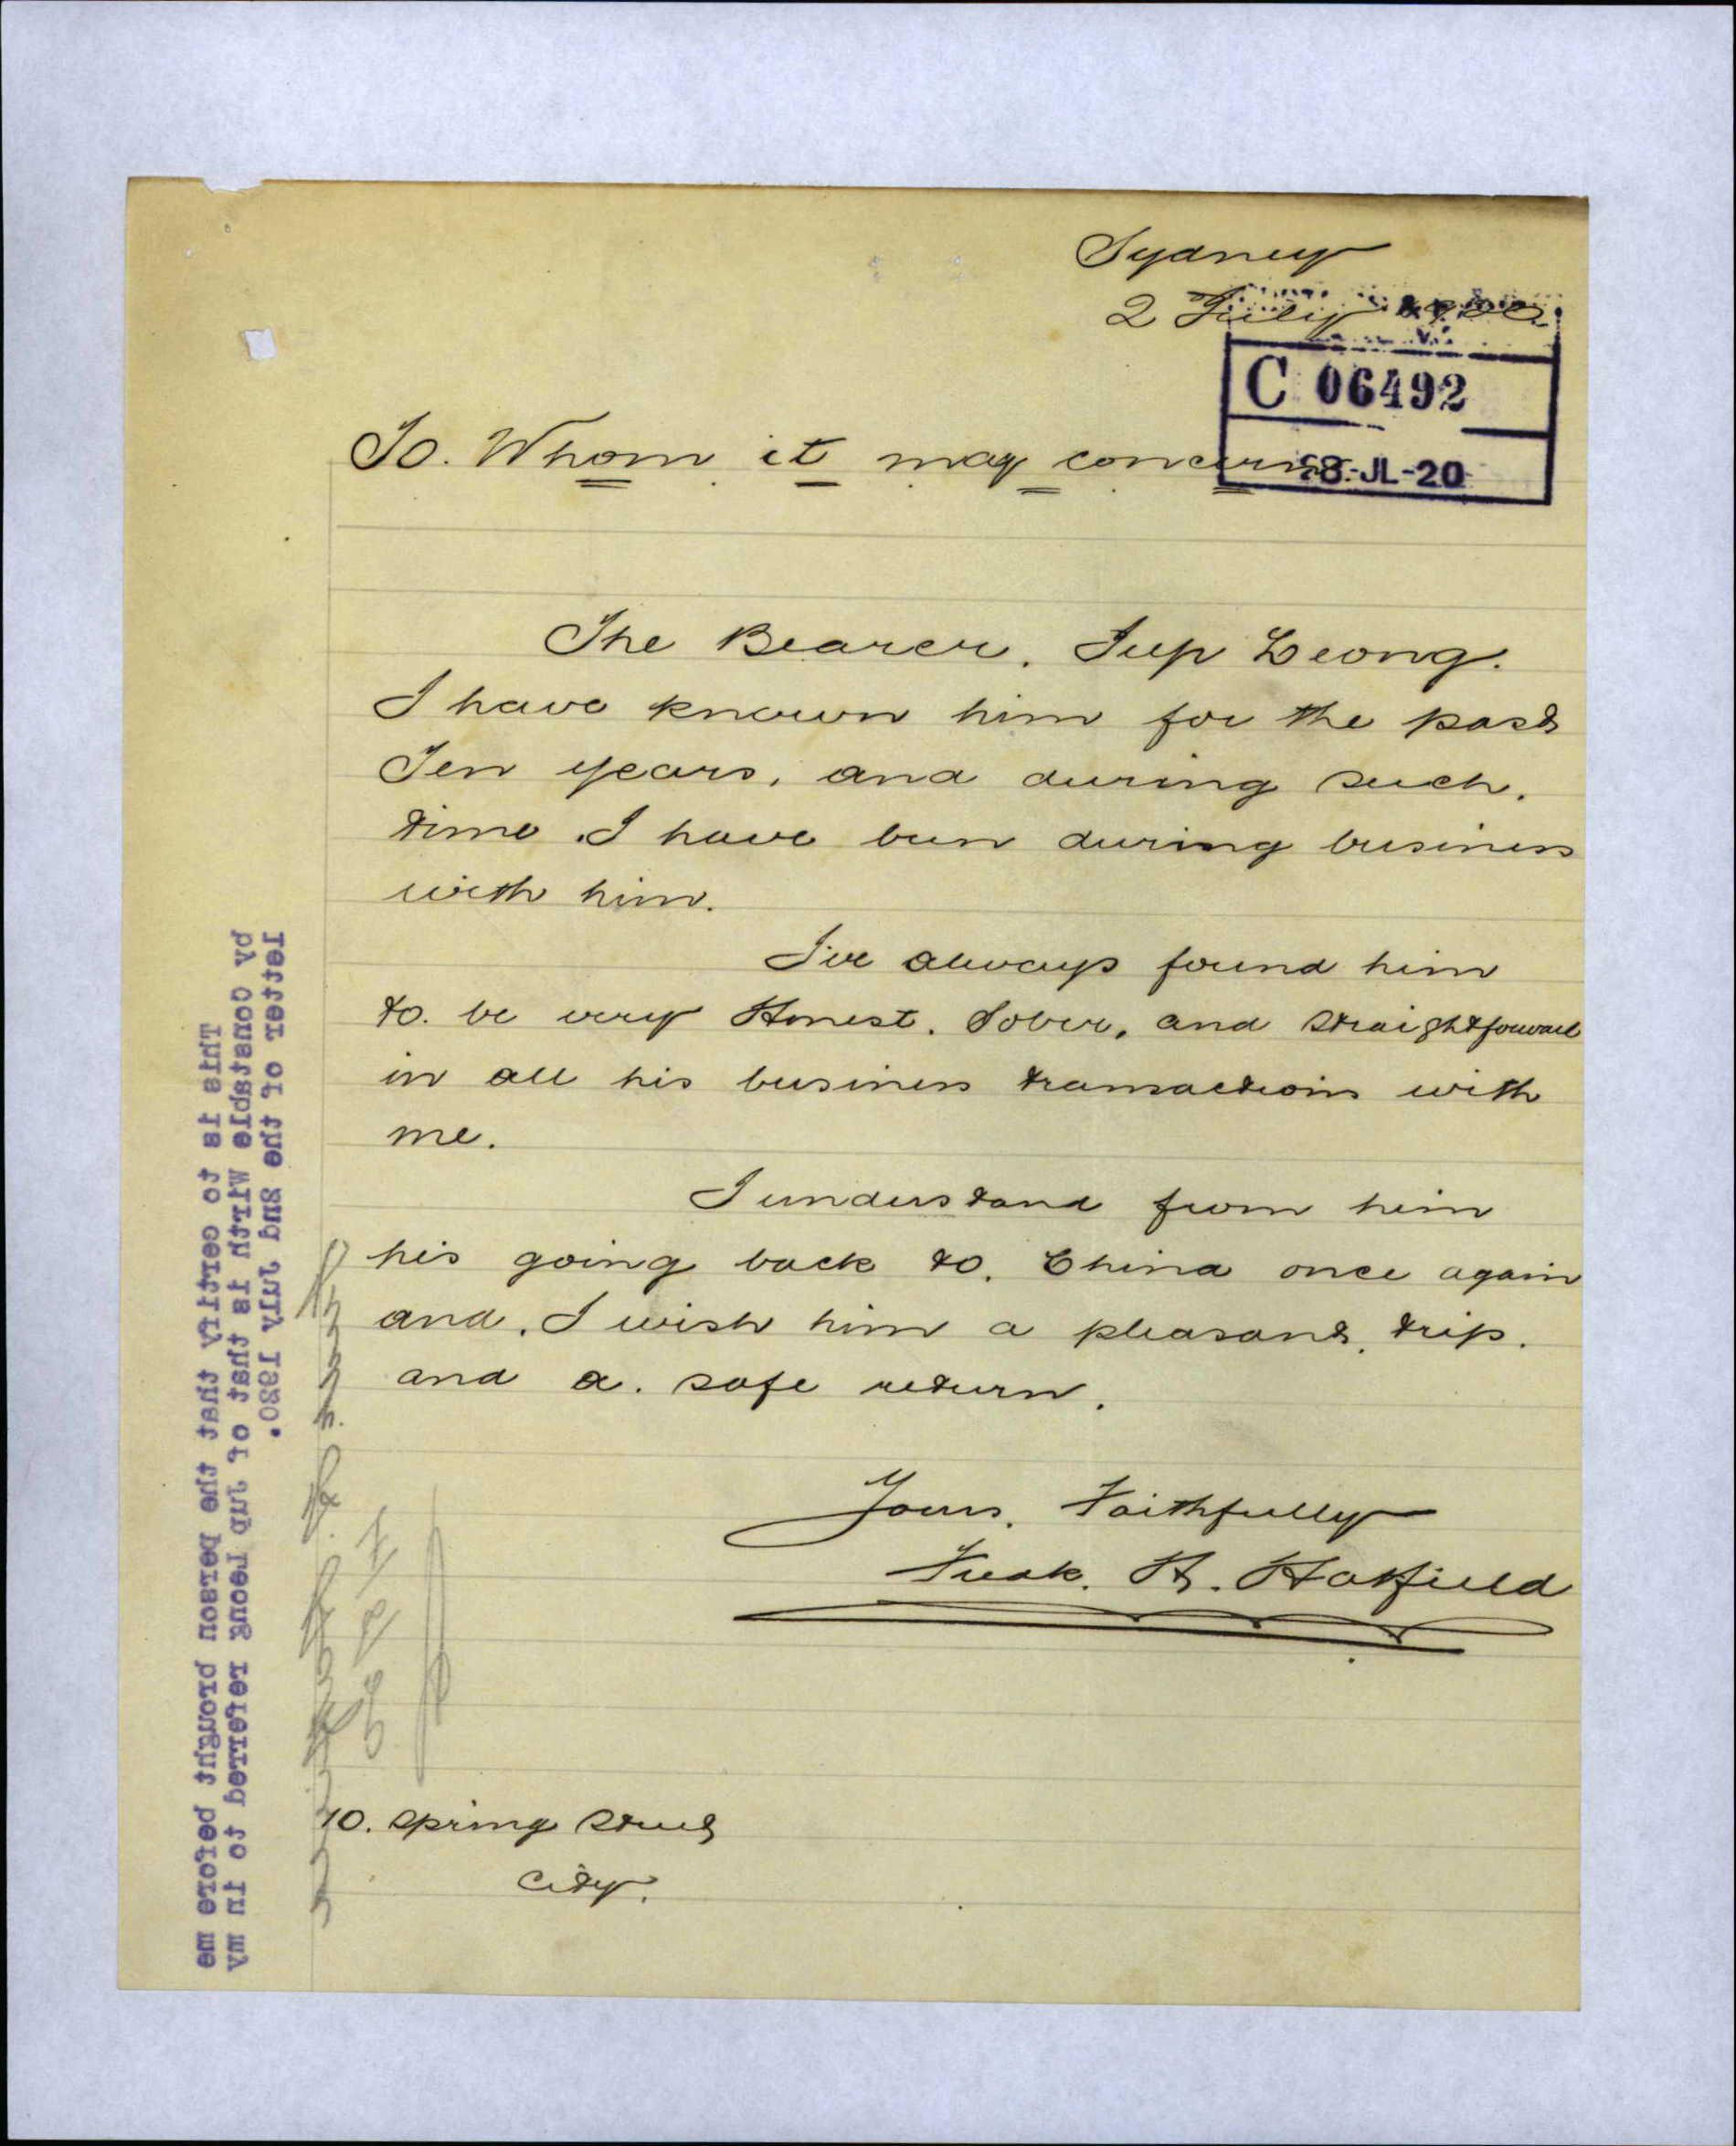 Sydney
2 July 1920
C 06492
28-JL-20
To. Whom it may concern
The Bearer. Jup Leong.
I have known him for the past
Ten years, and during such.
time. I have been during business
with him.
I've always found him
to. be very Honest. Sober, and straightforward
in all his business transactions with
me.
I understand from him
his going back to. China once again
and. I wish him a pleasant. trip.
and a. safe return.
Yours. Faithfully
Fredk. H. Hatfield
10. Spring Street
City.
This is to certify that the person brought before me
by Constable Wirth is that of Jup Leong referred to in my
letter of the 2nd July 1920.